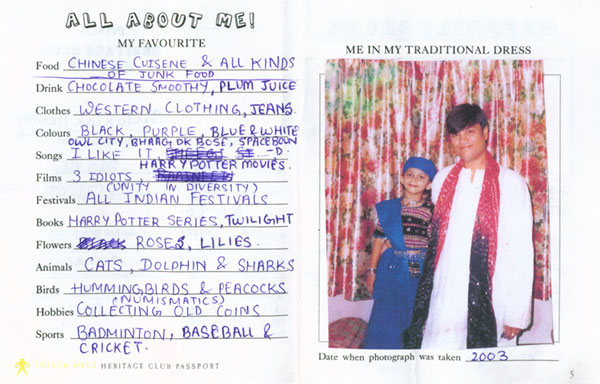 ALL ABOUT ME!
MY FAVOURITE
Food CHINESE CUISENE & ALL KINDS
OF JUNK FOOD
Drink CHOCOLATE SMOOTHY, PLUM JUICE
Clothes WESTERN CLOTHING, JEANS.
Colours BLACK, PURPLE, BLUE & WHITE
OWL CITY, BHAAG DK BOSE, SPACEBOUN
Songs I LIKE IT, -D.
HARRY POTTER MOVIES.
Films 3 IDIOTS,
(UNITY IN DIVERSITY)
Festivals ALL INDIAN FESTIVALS
Books HARRY POTTER SERIES, TWILIGHT
Flowers ROSES, LILIES.
Animals CATS, DOLPHIN & SHARKS
Birds HUMMINGBIRDS & PEACOCKS
(NUMISMATICS)
Hobbies COLLECTING OLD COINS
Sports BADMINTON, BASEBALL &
CRICKET.
HERITAGE CLUB PASSPORT
ME IN MY TRADITIONAL DRESS
Date when photograph was taken 2003
5